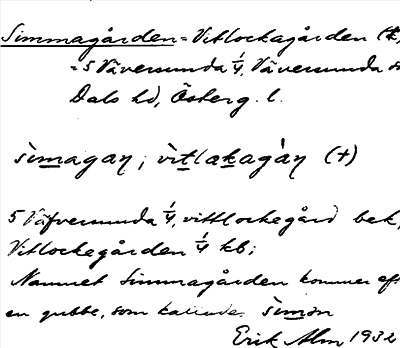 Simmagården = Vitlockagården (†),
= 5 Väversunda 1/4, Väversunda
Dals hd, Österg. l.
sìmagaɲ; vìtlakagàɲ (+)
5 Väfversunda 1/4, vittlockegård bek,
Vitlockegården 1/4 kb;
Namnet Simmagården kommer eft
en gubbe, som kallade. sìmɔn
Erik Alm 1932